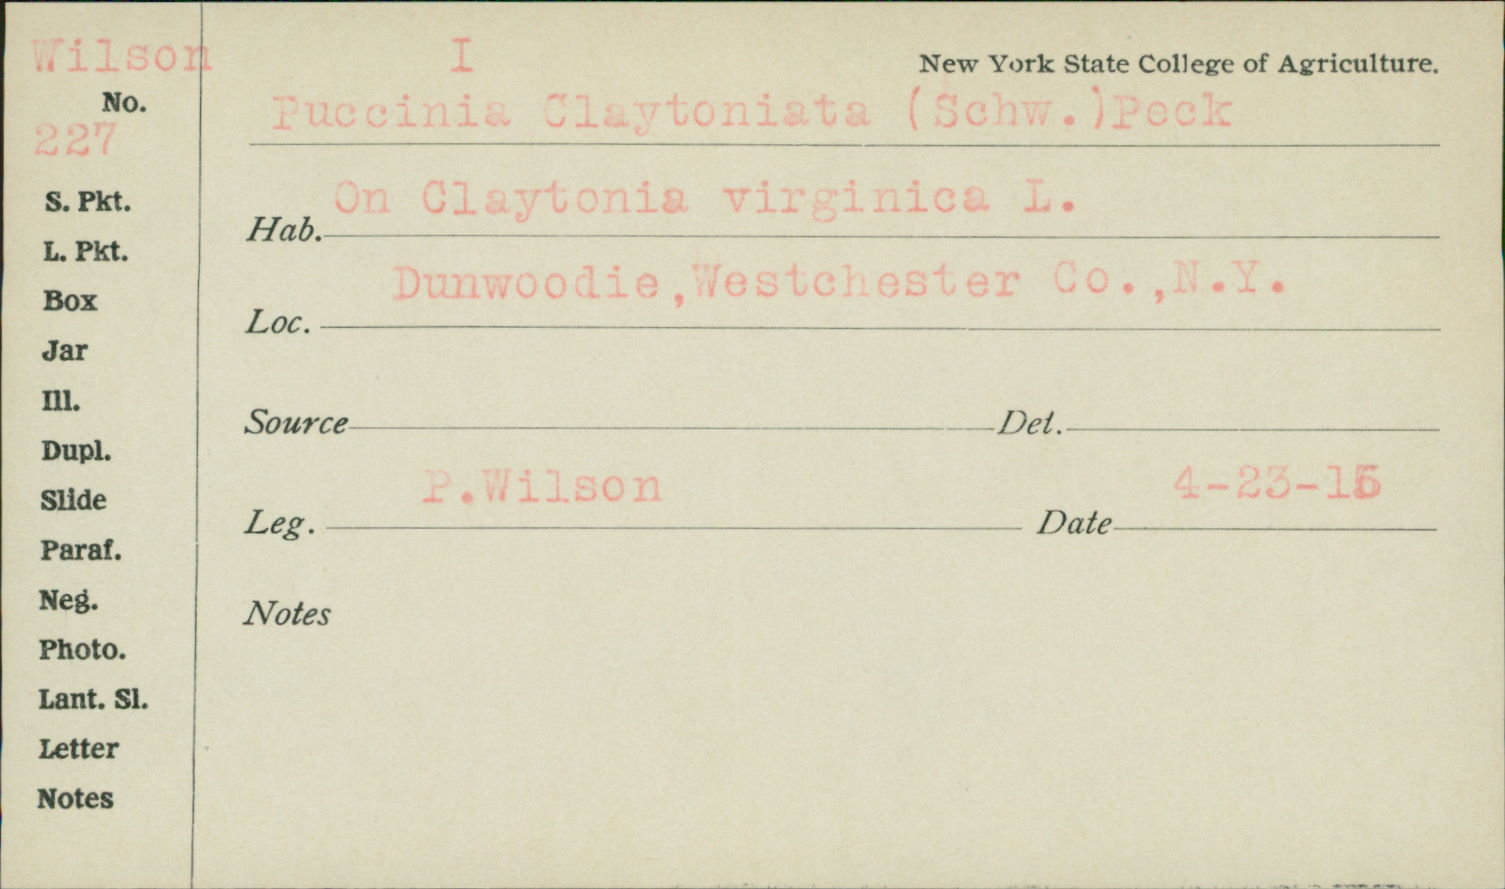 Wilson
I
New York State College of Agriculture.
No.
227
Puccinia Claytoniata (Schw.)Peck
S. Pkt.
On Claytonia virginica L.
Hab.
L. Pkt.
Dunwoodie,Westchester Co.,N.Y.
Box
Loc.
Jar
Ill.
Source
Det.
Dupl.
P.Wilson
Slide
Leg.
Date
Paraf.
Neg.
Notes
Photo.
Lant. Sl.
Letter
Notes